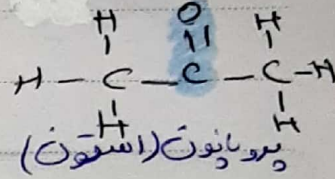 H O H
H - C - C - C - H
H H
پروپانون (استون)